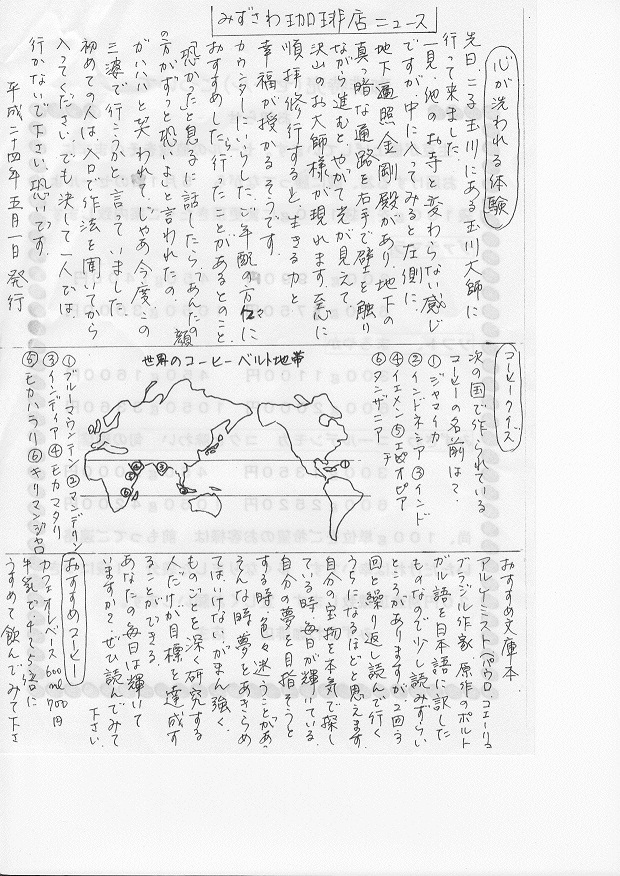 みずさわ珈琲店ニュース
心が洗われる体験
先日、二子玉川にある玉川大師に
行って来ました。
一見、他のお寺と変わらない感じ
ですが、中に入ってみると左側に、
地下遍照金剛殿があり地下の
真っ暗な通路を右手で壁を触り
ながら進むと、やがて光が見えて、
沢山のお大師様が現れます。至心に
順拝修行すると、生きる力と
幸福が授かるそうです。
カウンターにいらしたご年配の方々に
おすすめしたら、行ったことがあるとのこと。
「恐かった」と息子に話したら「あんたの顔
の方がずっと恐いよ」と言われたの
がハハハと笑われて、じゃあ今度この
三婆で行こうかと言っていました。
初めての人は、入口で作法を聞いてから
入ってください。でも決して一人では、
行かないで下さい。恐いです。
平成二十四年五月一日発行
コーヒークイズ
次の国で作られている
コーヒーの名前は?
①ジャマイカ
②インドネシア ③インド
④イエメン ⑤エチオピア
⑥タンザニア
世界のコーヒーベルト地帯
①ブルーマウンテン ②マンデリン
③インディアン ④モカマタリ
⑤モカハラリ ⑥キリマンジャロ
おすすめ文庫本
アルケミスト(パウロ コエーリョ)
ブラジル作家 原作のポルト
ガル語を日本語に訳した
ものなので少し読みずらい
ところがありますが、2回3
回と繰り返し読んで行く
うちになるほどと思えます。
自分の宝物を本気で探し
ている時、毎日が輝いている。
自分の夢を目指そうと
する時、色々迷うことがある
そんな時、夢をあきらめ
てはいけない。がまん強く、
ものごとを深く研究する
人だけが目標を達成す
ることができる。
あなたの毎日は輝いて
いますか?ぜひ読んでみて
下さい。
おすすめコーヒー
カフェオレベース 600ml 700円
うすめて飲んでみて下さ